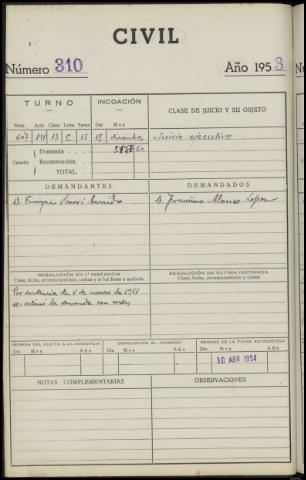 CIVIL
Número 310
Año 1953
TURNO
INCOACIÓN
CLASE DE JUICIO Y SU OBJETO
Núm. Acto Clase Letra Tarea Día Mes
607 15 C 15 18 diciembre Juicio ejecutivo
Demanda
Cuantía Reconvención
TOTAL
DEMANDANTES
DEMANDADOS
D. Enrique
D. Francisco Alonso López
RESOLUCIÓN EN 1.ª INSTANCIA
Clase, fecha, pronunciamiento, costas y si fué firme o apelada
RESOLUCIÓN DE ÚLTIMA INSTANCIA
Clase, fecha, pronunciamiento y costas
Por sentencia de de marzo de 1954
se estima la demanda con costas
REMESA DEL PLEITO A LA AUDIENCIA
DEVOLUCIÓN AL JUZGADO
REMESA DE LA FICHA ESTADÍSTICA
Día Mes Año Día Mes Año
10 ABR 1954
NOTAS COMPLEMENTARIAS
OBSERVACIONES